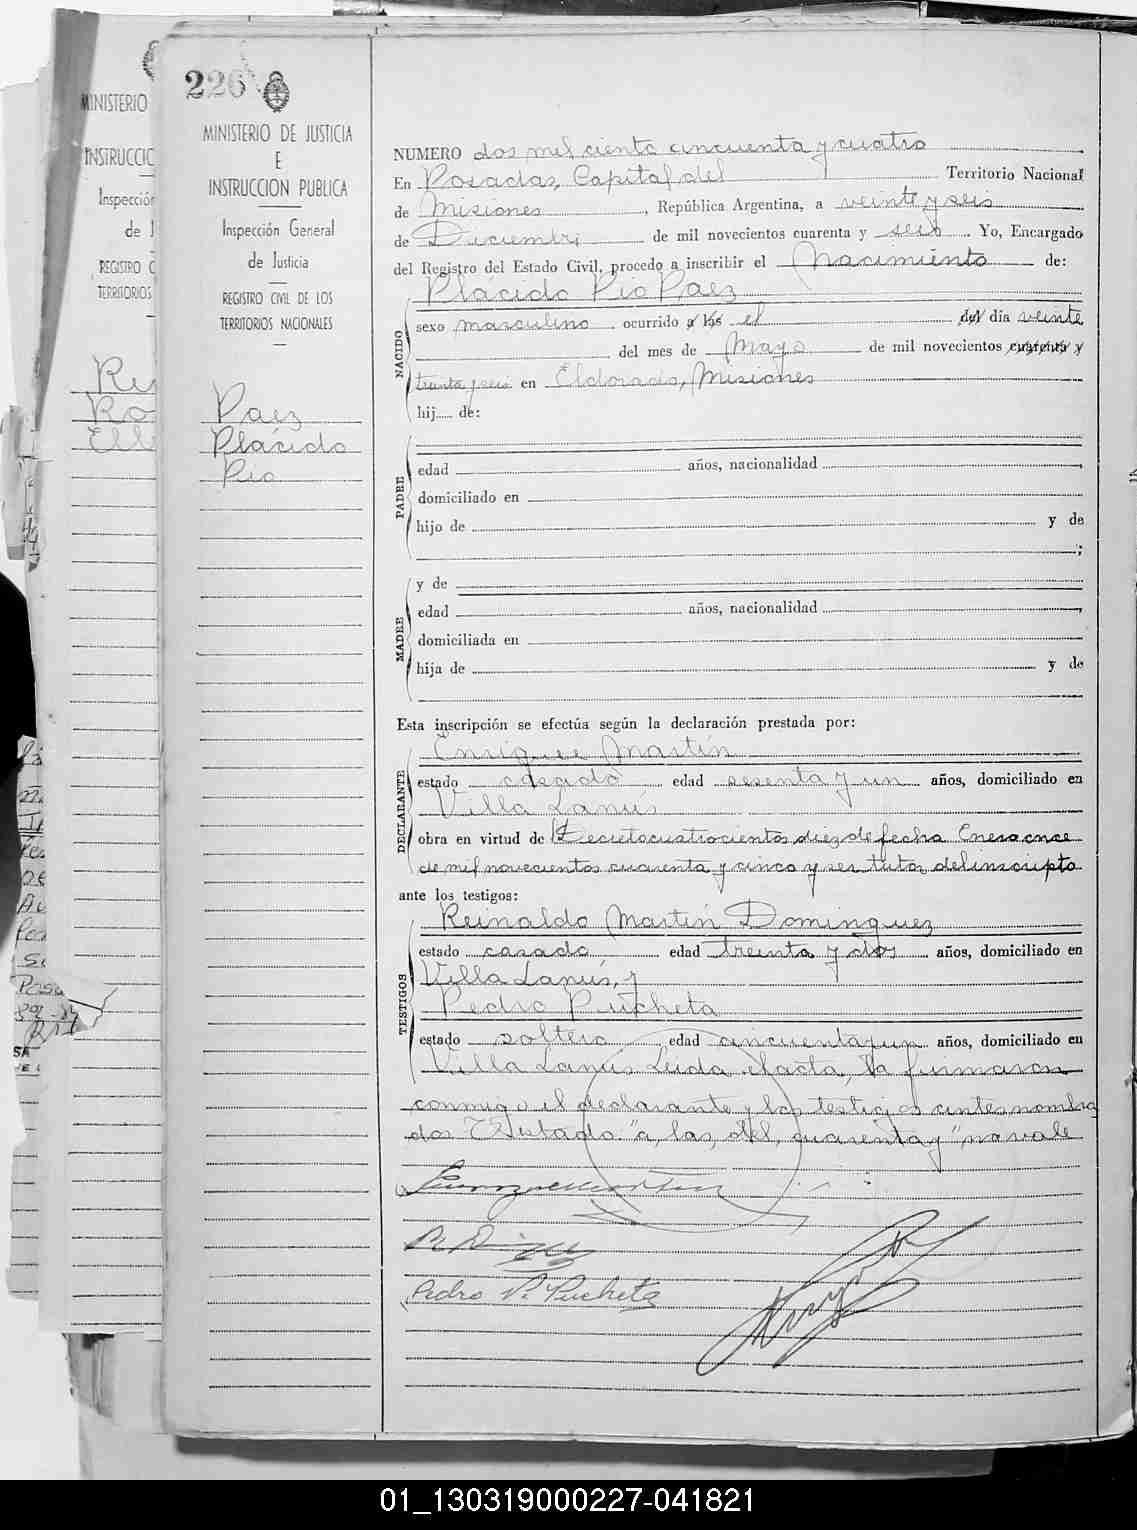 226
MINISTERIO DE JUSTICIA
E
INSTRUCCION PUBLICA
Inspección General
de Justicia
REGISTRO CIVIL DE LOS
TERRITORIOS NACIONALES
Paez
Plácido
Pio
NUMERO dos mil ciento cincuenta y cuatro
En Posadas, Capital del Territorio Nacional
de Misiones, República Argentina, a veinte y seis
de Diciembre de mil novecientos cuarenta y seis. Yo, Encargado
del Registro del Estado Civil, procedo a inscribir el Nacimiento de:
NACIDO
Plácido Pio Paez
sexo masculino ocurrido a las el del día veinte
del mes de Mayo de mil novecientos cuarenta y
treinta y seis en Eldorado, Misiones
hij de:
PADRE
edad años, nacionalidad
domiciliado en
hijo de y de
;
MADRE
y de
edad años, nacionalidad
domiciliada en
hija de y de
Esta inscripción se efectúa según la declaración prestada por:
DECLARANTE
Enrique Martín
estado casado edad sesenta y un años, domiciliado en
Villa Lanus
obra en virtud de Decreto cuatrocientos diez de fecha Enero once
de mil novecientos cuarenta y cinco y ser tutor del inscripto
ante los testigos:
TESTIGOS
Reinaldo Martin Dominguez
estado casado edad treinta y dos años, domiciliado en
Villa Lanús, y
Pedro Pucheta
estado soltero edad cincuenta y un años, domiciliado en
Villa Lanus Leida el acta, la firmaron
conmigo el declarante y los testigos antes nombra
dos Testado: "a, las, del, cuarenta y" no vale
Pedro P. Pucheta
MINISTERIO
INSTRUCCIO
Inspección
de J
REGISTRO C
TERRITORIOS
01_130319000227-041821